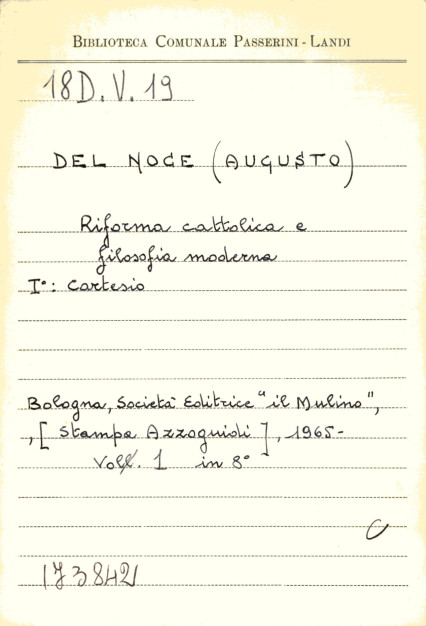 BIBLIOTECA COMUNALE PASSERINI - LANDI
18D.V.19
DEL NOCE (AUGUSTO)
Riforma cattolica e
filosofia moderna
I°: Cartesio
Bologna, Società Editrice "il Mulino",
,[Stampa Azzoguidi], 1965-
Voll. 1 in 8°
C
173842